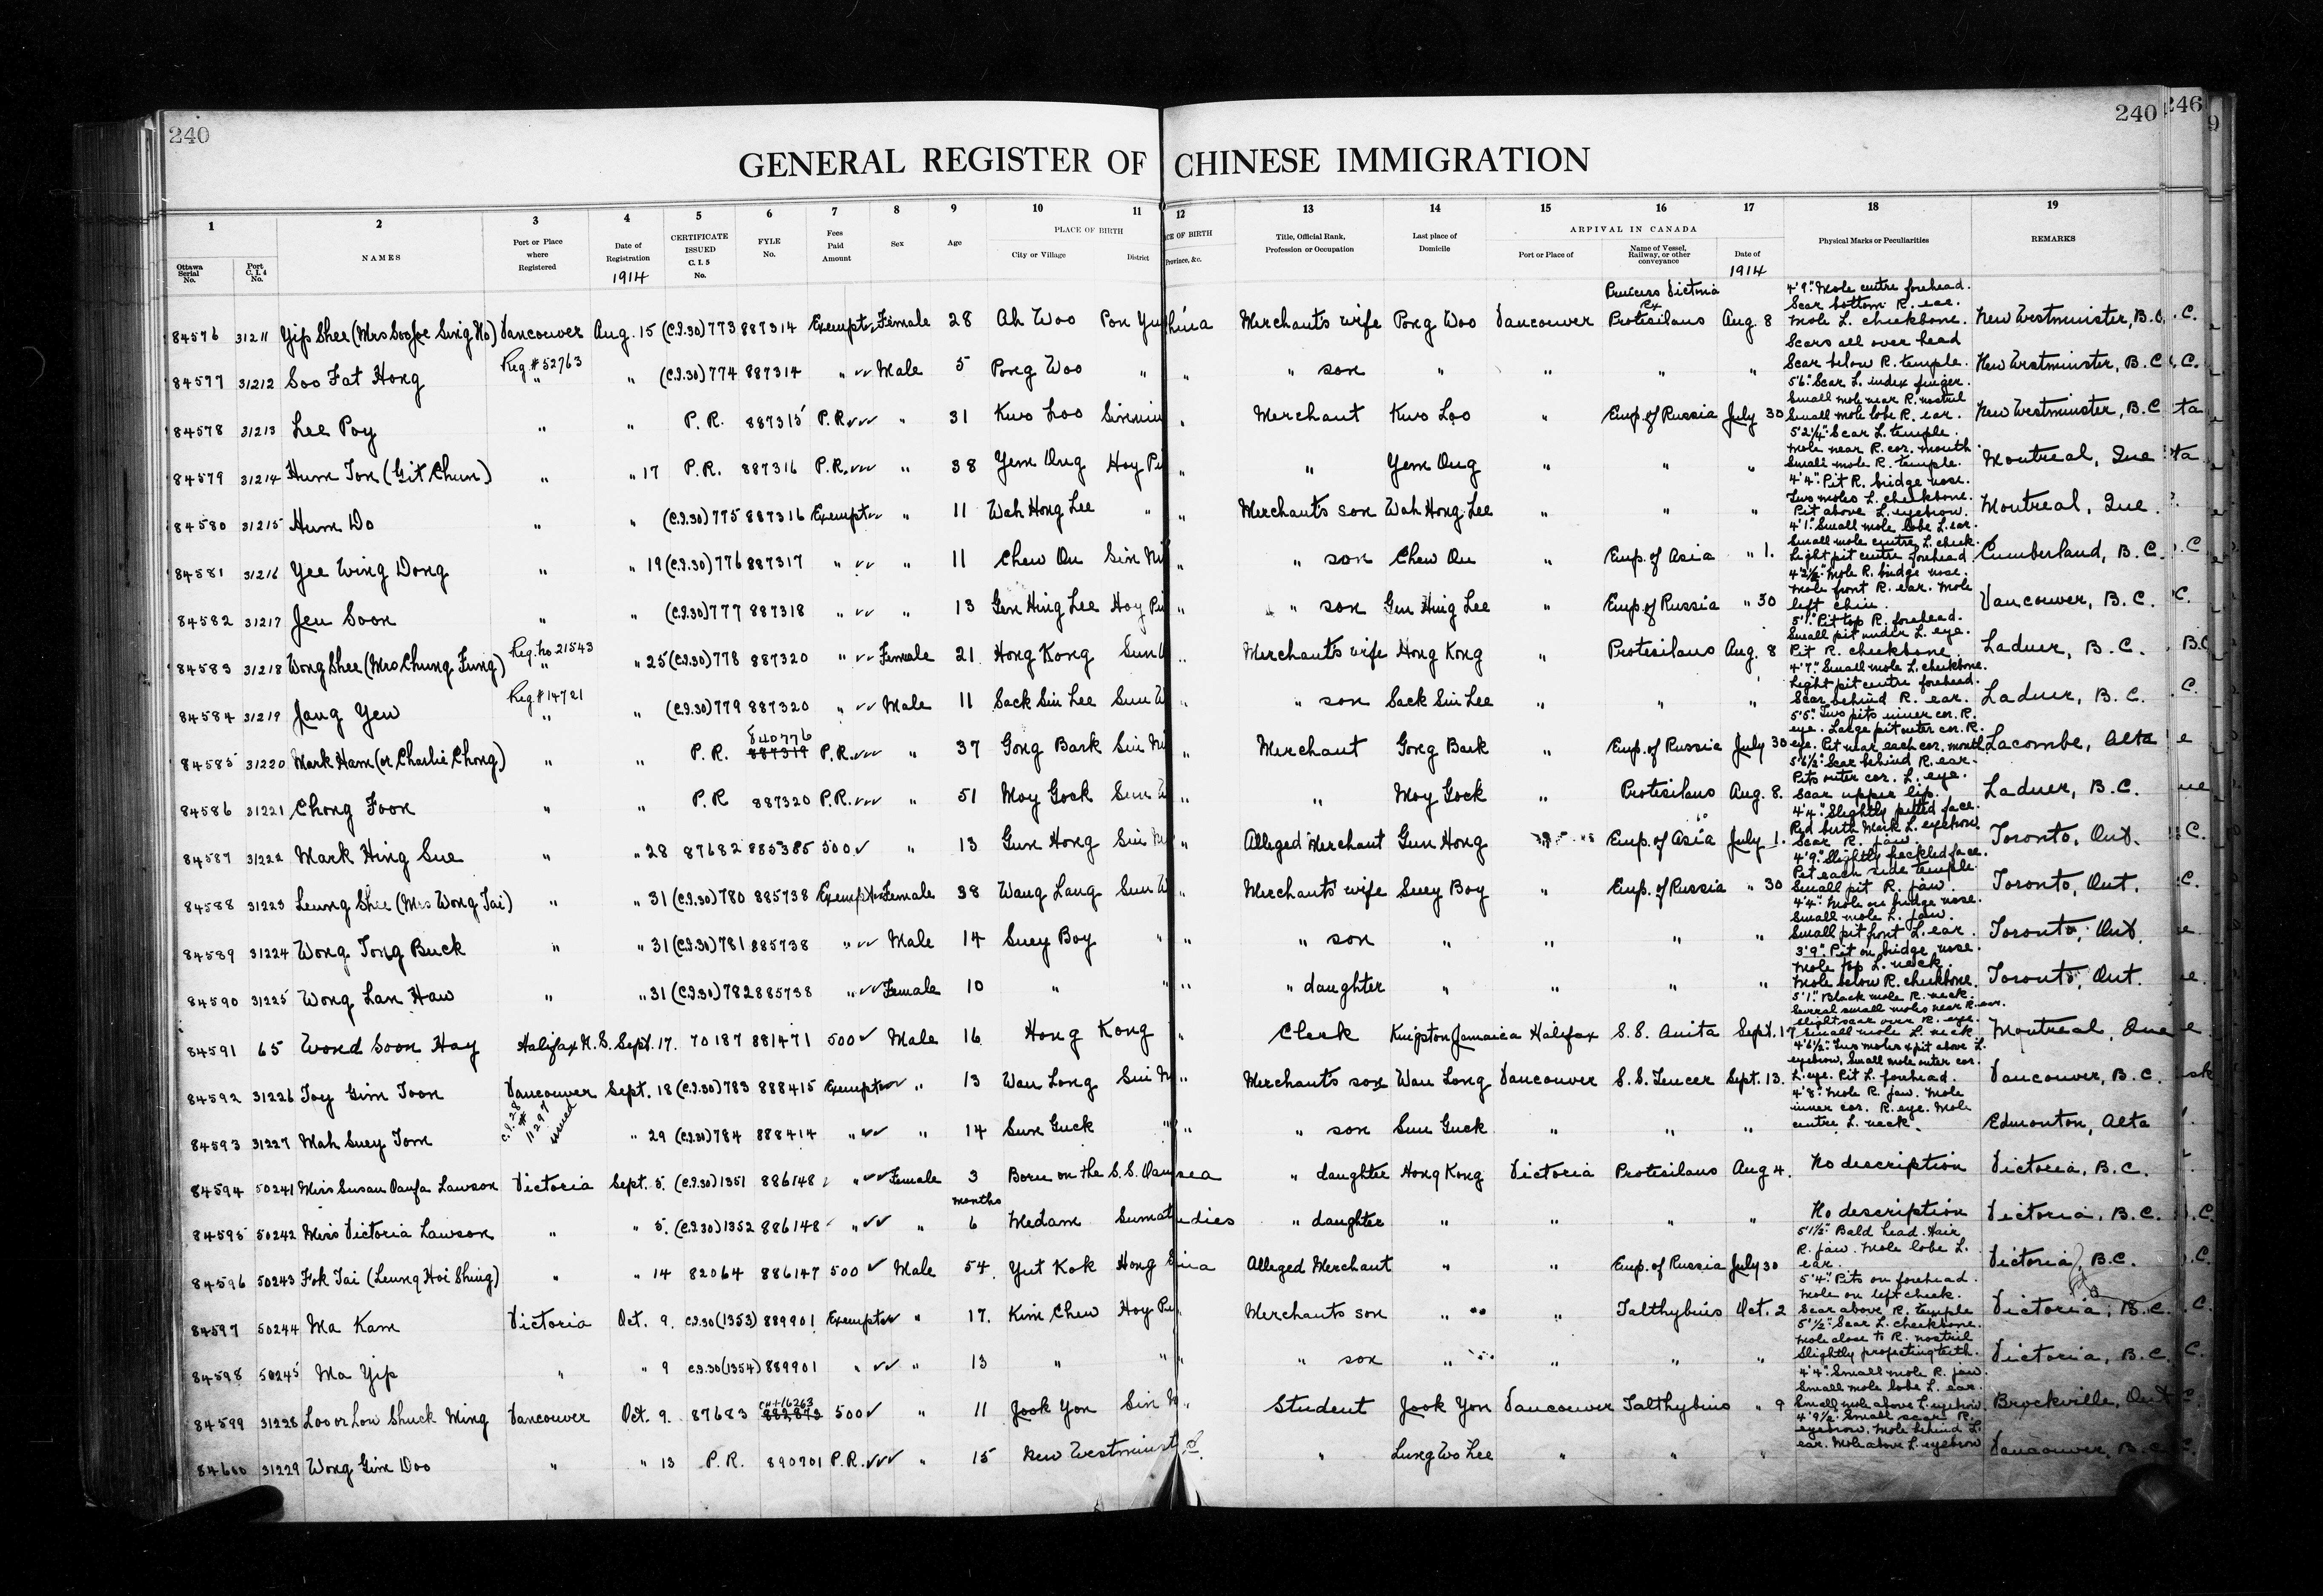 240
240
246
9
GENERAL REGISTER OF CHINESE IMMIGRATION
1 2 3 4 5 6 7 8 9 10 11 12 13 14 15 16 17 18 19
Ottawa Serial No.
Port C. I. 4 No.
NAMES
Port or Place where Registered
Date of Registration
1914
CERTIFICATE ISSUED C. I. 5 No.
FYLE No.
Fees Paid Amount
Sex
Age
PLACE OF BIRTH
City or Village
District
CE OF BIRTH
Province, &c.
Title, Official Rank, Profession or Occupation
Last place of Domicile
ARRIVAL IN CANADA
Port or Place of
Name of Vessel, Railway, or other conveyance
Date of
1914
Physical Marks or Peculiarities
REMARKS
84576 31211 Yip Shee (Mrs Soo Joe Sing Ho) Vancouver Aug. 15 (C.I.30) 773 887314 Exempt Female 28 Ah Woo Pon Yu hina Merchants wife Pong Woo Vancouver Princess Victoria Ex Protesilaus Aug. 8 4'9". Mole centre forehead. Scar bottom R. ear. Mole L. cheekbone. New Westminster, B.C.
84577 31212 Soo Fat Hong Reg. # 52763 " " (C.I.30) 774 887314 " Male 5 Pong Woo " " " son " " " " Scars all over head Scar below R. temple. New Westminster, B.C
84578 31213 Lee Poy " " P. R. 887315 P.R. " 31 Kwo Loo Sinnin " Merchant Kwo Loo " Emp. of Russia July 30 5'6". Scar L. index finger. Small mole near R. nostril Small mole lobe R. ear. New Westminster, B.C
84579 31214 Hum Ton (Git Chun) " " 17 P.R. 887316 P.R. " 38 Yem Ong Hoy Pi " " Yem Ong " " " 5'2¼". Scar L. temple. Mole near R. cor. mouth Small mole R. temple. Montreal, Que
84580 31215 Hum Do " " (C.I.30) 775 887316 Exempt " 11 Wah Hong Lee " " Merchants son Wah Hong Lee " " " 4'4". Pit R. bridge nose. Two moles L. cheekbone. Pit above L. eyebrow. Montreal, Que.
84581 31216 Yee Wing Dong " " 19 (C.I.30) 776 887317 " " 11 Chew On Sin Ni " " son Chew On " Emp. of Asia " 1. 4'1". Small mole lobe L. ear. Small mole centre L. cheek. Light pit centre forehead Cumberland, B.C.
84582 31217 Jen Soon " " (C.I.30) 777 887318 " " 13 Gen Hing Lee Hoy Pi " " son Gen Hing Lee " Emp. of Russia " 30 4'3½". Mole R. bridge nose. Mole front R. ear. Mole left chin. Vancouver, B.C.
84583 31218 Wong Shee (Mrs Chung Fung) Reg. No 21543 " " 25 (C.I.30) 778 887320 " Female 21 Hong Kong Sun W " Merchants wife Hong Kong " Protesilaus Aug. 8 5'1". Pit top R. forehead. Small pit under L. eye. Pit R. cheekbone. Ladner, B.C.
84584 31219 Jang Yew Reg # 14721 " " (C.I.30) 779 887320 " Male 11 Sack Sin Lee Sun W " " son Sack Sin Lee " " " 4'7". Small mole L. cheekbone. Light pit centre forehead. Scar behind R. ear. Ladner, B.C.
84585 31220 Mark Ham (or Charlie Chong) " " P. R. 840776 887319 P.R. " 37 Gong Bark Sin Ni " Merchant Gong Bark " Emp. of Russia July 30 5'5". Two pits inner cor. R. eye. Large pit outer cor. R. eye. Pit near each cor. mouth Lacombe, Alta
84586 31221 Chong Foon " " P.R 887320 P.R. " 51 Moy Gock Sun W " " Moy Gock " Protesilaus Aug. 8. 5'6½". Scar behind R. ear. Pits outer cor. L. eye. Scar upper lip. Ladner, B.C.
84587 31222 Mark Hing Sue " " 28 87682 885385 500 " 13 Gun Hong Sin Ni " Alleged Merchant Gun Hong Emp. of Asia July 1. 4'4". Slightly pitted face. Red birth mark L. eyebrow Scar R. jaw. Toronto, Ont.
84588 31223 Leung Shee (Mrs Wong Tai) " " 31 (C.I.30) 780 885738 Exempt Female 38 Wang Lang Sun W " Merchants wife Suey Boy " Emp. of Russia " 30 4'9". Slightly freckled face. Pit each side temple. Small pit R. jaw. Toronto, Ont.
84589 31224 Wong Tong Buck " " 31 (C.I.30) 781 885738 " Male 14 Suey Boy " " " son " " " " 4'4". Mole on bridge nose. Small mole L. jaw. Small pit front L. ear. Toronto, Ont.
84590 31225 Wong Lan Haw " " 31 (C.I.30) 782 885738 " Female 10 " " " " daughter " " " " 3'9". Pit on bridge nose. Mole top L. neck. Mole below R. cheekbone. Toronto, Ont.
84591 65 Wond Soon Hay Halifax N.S. Sept. 17. 70187 881471 500 Male 16 Hong Kong " Clerk Kingston Jamaica Halifax S.S. Anita Sept. 17 5'1". Black mole R. neck. Several small moles near R. ear. Slight scar over R. eye. Small mole L. neck Montreal, Que
84592 31226 Toy Gim Toon Vancouver Sept. 18 (C.I.30) 783 888415 Exempt " 13 Wan Long Sin N " Merchants son Wan Long Vancouver S.S. Teucer Sept. 13. 4'6½". Two moles & pit above L. eyebrow. Small mole outer cor. L. eye. Pit L. forehead. Vancouver, B.C.
84593 31227 Mah Suey Tom C.I. 28 # 11297 issued " 29 (C.I.30) 784 888414 " " 14 Sun Guck " " " son Sun Guck " " " 4'8". Mole R. jaw. Mole inner cor. R. eye. Mole centre L. neck. Edmonton, Alta
84594 50241 Miss Susan Lawson Victoria Sept. 5. (C.I.30) 1351 886148 " Female 3 Born on the S.S. sea " daughter Hong Kong Victoria Protesilaus Aug 4. No description Victoria, B.C.
84595 50242 Miss Victoria Lawson " " 5. (C.I.30) 1352 886148 " " months 6 Medam Sumat ndies " daughter " " " " No description Victoria, B.C.
84596 50243 Fok Tai (Leung Hoi Shing) " " 14 82064 886147 500 Male 54 Yut Kok Hong ina Alleged Merchant " " Emp. of Russia July 30 5'1½". Bald head. Hair R. jaw. Mole lobe L. ear. Victoria, B.C.
84597 50244 Ma Kam Victoria Oct. 9. C.I.30 (1353) 889901 Exempt " 17. Kim Chew Hoy Pi " Merchants son " " Talthybius Oct. 2 5'4". Pits on forehead. Mole on left cheek. Scar above R. temple Victoria, B.C.
84598 50245 Ma Yip " " 9 C.I.30 (1354) 889901 " " 13 " " " " son " " " " 5'½". Scar L. cheekbone. Mole close to R. nostril Slightly projecting teeth. Victoria, B.C.
84599 31228 Loo or Lou Shuck Ming Vancouver Oct. 9. 87683 882873 500 " 11 Jook Yon Sin N " Student Jook Yon Vancouver Talthybius " 9 4'4". Small mole R. jaw. Small mole lobe L. ear. Small mole above L. eyebrow Brockville, Ont
84600 31229 Wong Gim Doo " " 13 P. R. 890701 P.R. " 15 New Westminst " Lung Wo Lee " " " 4'9½". Small scar R. eyebrow. Mole behind L. ear. Mole above L. eyebrow Vancouver, B.C.